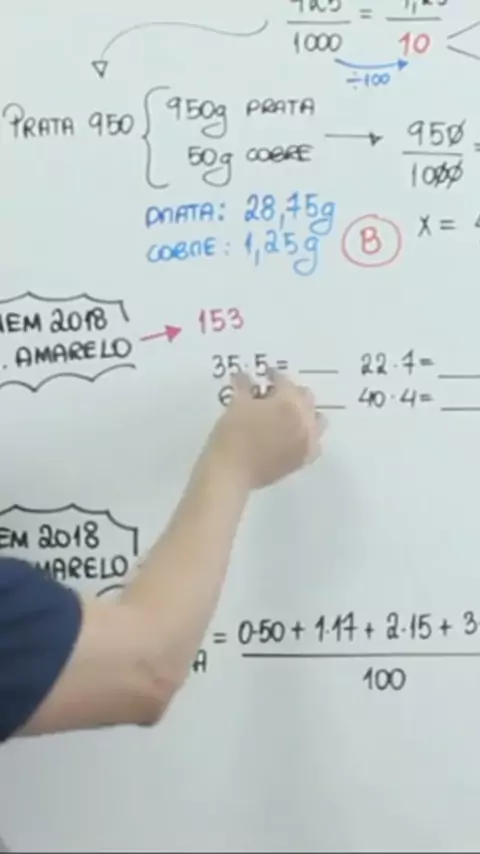 1000 = 10
÷100
PRATA 950 950g PRATA
50g COBRE
950
1000 =
PRATA: 28,75g
COBRE: 1,25g B X =
EM 2018
. AMARELO 153
35·5= __ 22·7= __
6 __ 40·4= __
EM 2018
MARELO
A = 0·50 + 1·17 + 2·15 + 3
100